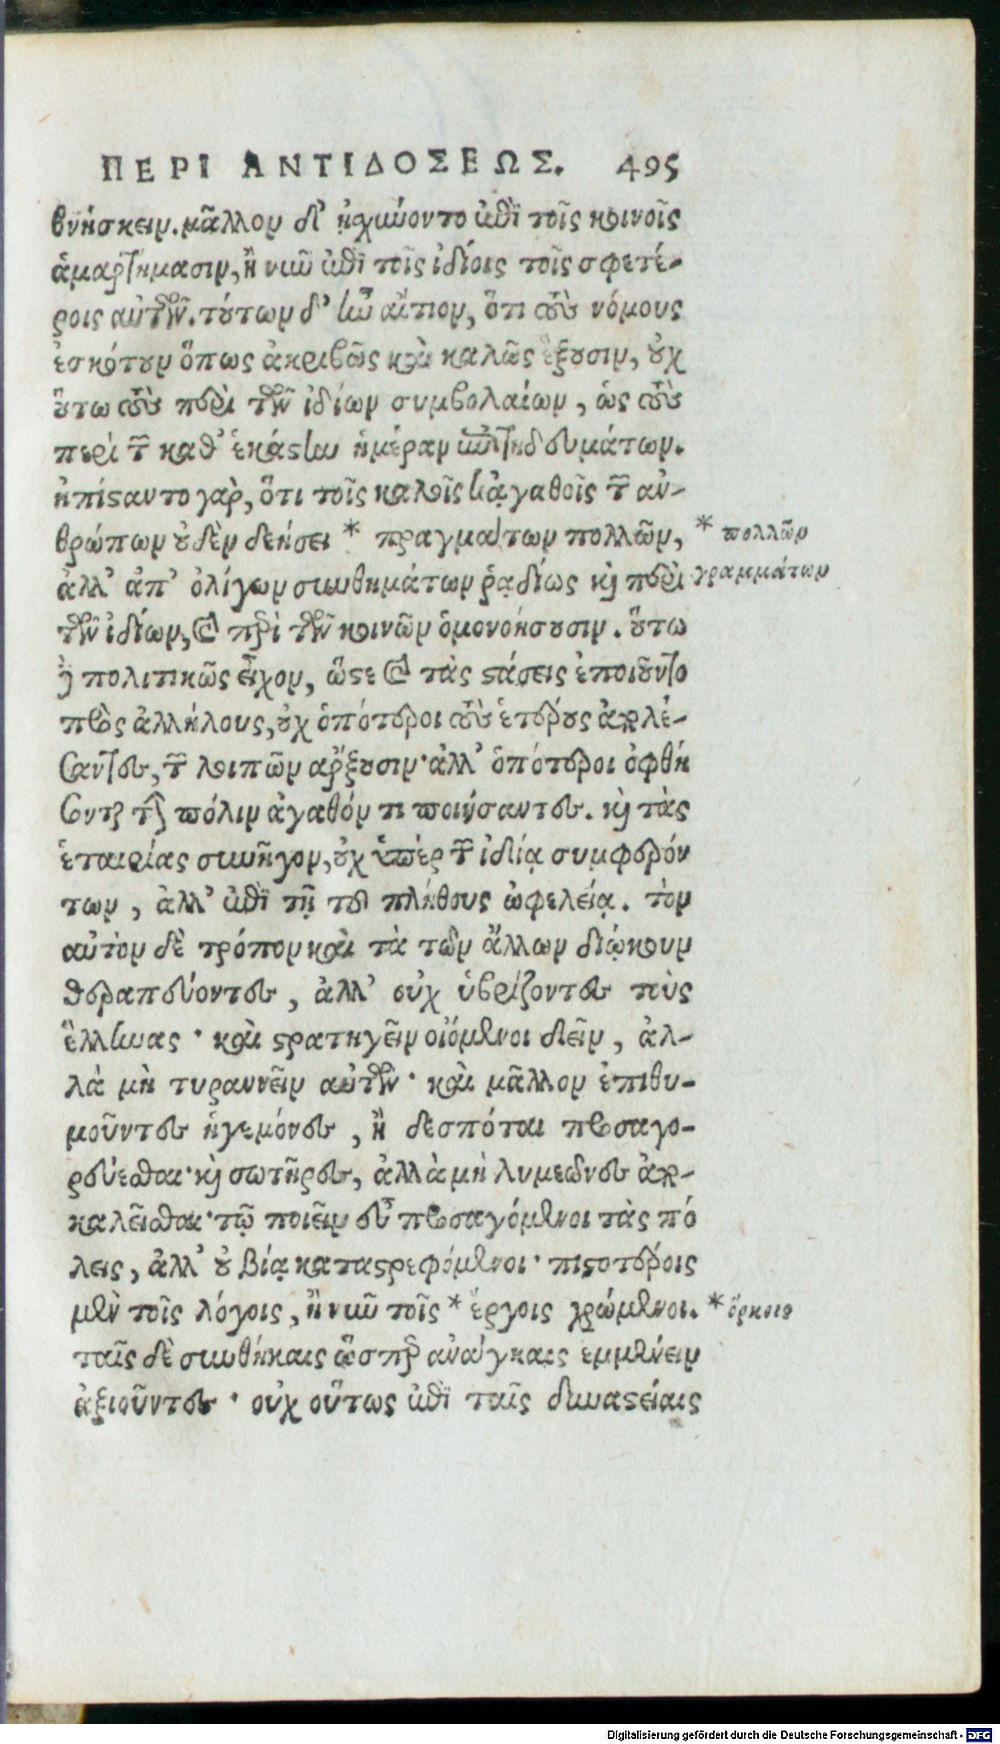 ΠΕΡΙ ΑΝΤΙΔΟΣΕΩΣ. 495
θνήσκειν. μᾶλλον δ' ᾐχύνοντο ἐπὶ τοῖς κοινοῖς
ἁμαρτήμασιν, ἢ νῦν ἐπὶ τοῖς ἰδίοις τοῖς σφετέ-
ροις αὐτῶν. τούτων δ' ἦν αἴτιον, ὅτι τοὺς νόμους
ἐσκόπουν ὅπως ἀκριβῶς καὶ καλῶς ἕξουσιν, οὐχ
οὕτω τοὺς περὶ τῶν ἰδίων συμβολαίων, ὡς τοὺς
περὶ τῶν καθ' ἑκάστην ἡμέραν ἐπιτηδευμάτων.
ἠπίσταντο γὰρ, ὅτι τοῖς καλοῖς κἀγαθοῖς τῶν ἀν-
θρώπων οὐδὲν δεήσει * πραγμάτων πολλῶν, * πολλῶν
ἀλλ' ἀπ' ὀλίγων συνθημάτων ῥᾳδίως καὶ περὶ γραμμάτων
τῶν ἰδίων, καὶ περὶ τῶν κοινῶν ὁμονοήσουσιν. οὕτω
δὲ πολιτικῶς εἶχον, ὥστε καὶ τὰς στάσεις ἐποιοῦντο
πρὸς ἀλλήλους, οὐχ ὁπότεροι τοὺς ἑτέρους ἀπολέ-
σαντες, τῶν λοιπῶν ἄρξουσιν· ἀλλ' ὁπότεροι ὀφθή
σονται τὴν πόλιν ἀγαθόν τι ποιήσαντες. καὶ τὰς
ἑταιρίας συνῆγον, οὐχ ὑπὲρ τῶν ἰδίᾳ συμφερόν
των, ἀλλ' ἐπὶ τῇ τοῦ πλήθους ὠφελείᾳ. τὸν
αὐτὸν δὲ τρόπον καὶ τὰ τῶν ἄλλων διῴκουν
θεραπεύοντες, ἀλλ' οὐχ ὑβρίζοντες τοὺς
ἕλληνας· καὶ στρατηγεῖν οἰόμενοι δεῖν, ἀλ-
λὰ μὴ τυραννεῖν αὐτῶν· καὶ μᾶλλον ἐπιθυ-
μοῦντες ἡγεμόνες, ἢ δεσπόται προσαγο-
ρεύεσθαι· καὶ σωτῆρες, ἀλλὰ μὴ λυμεῶνες ἀπο-
καλεῖσθαι· τῷ ποιεῖν εὖ προσαγόμενοι τὰς πό
λεις, ἀλλ' οὐ βίᾳ καταστρεφόμενοι· πιστοτέροις
μὲν τοῖς λόγοις, ἢ νῦν τοῖς * ἔργοις χρώμενοι. * ὅρκοις
ταῖς δὲ συνθήκαις ὥσπερ ἀνάγκαις ἐμμένειν
ἀξιοῦντες· οὐχ οὕτως ἐπὶ ταῖς δυναστείαις
Digitalisierung gefördert durch die Deutsche Forschungsgemeinschaft - DFG